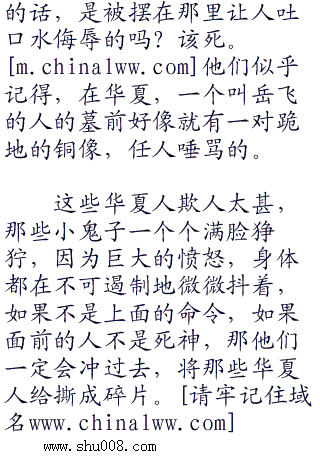 的话，是被摆在那里让人吐
口水侮辱的吗？该死。
[m.china1ww.com]他们似乎
记得，在华夏，一个叫岳飞
的人的墓前好像就有一对跪
地的铜像，任人唾骂的。
这些华夏人欺人太甚，
那些小鬼子一个个满脸狰
狞，因为巨大的愤怒，身体
都在不可遏制地微微抖着，
如果不是上面的命令，如果
面前的人不是死神，那他们
一定会冲过去，将那些华夏
人给撕成碎片。[请牢记住域
名www.china1ww.com]
www.shu008.com